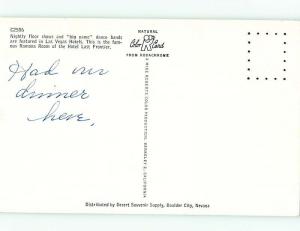 C2586
Nightly floor shows and "big name" dance bands
are featured in Las Vegas Hotels. This is the fam-
ous Ramona Room of the Hotel Last Frontier.
Had our
dinner
here,
NATURAL
Color Card
FROM KODACHROME
A MIKE ROBERTS COLOR PRODUCTION, BERKELEY 2, CALIFORNIA
Distributed by Desert Souvenir Supply, Boulder City, Nevada